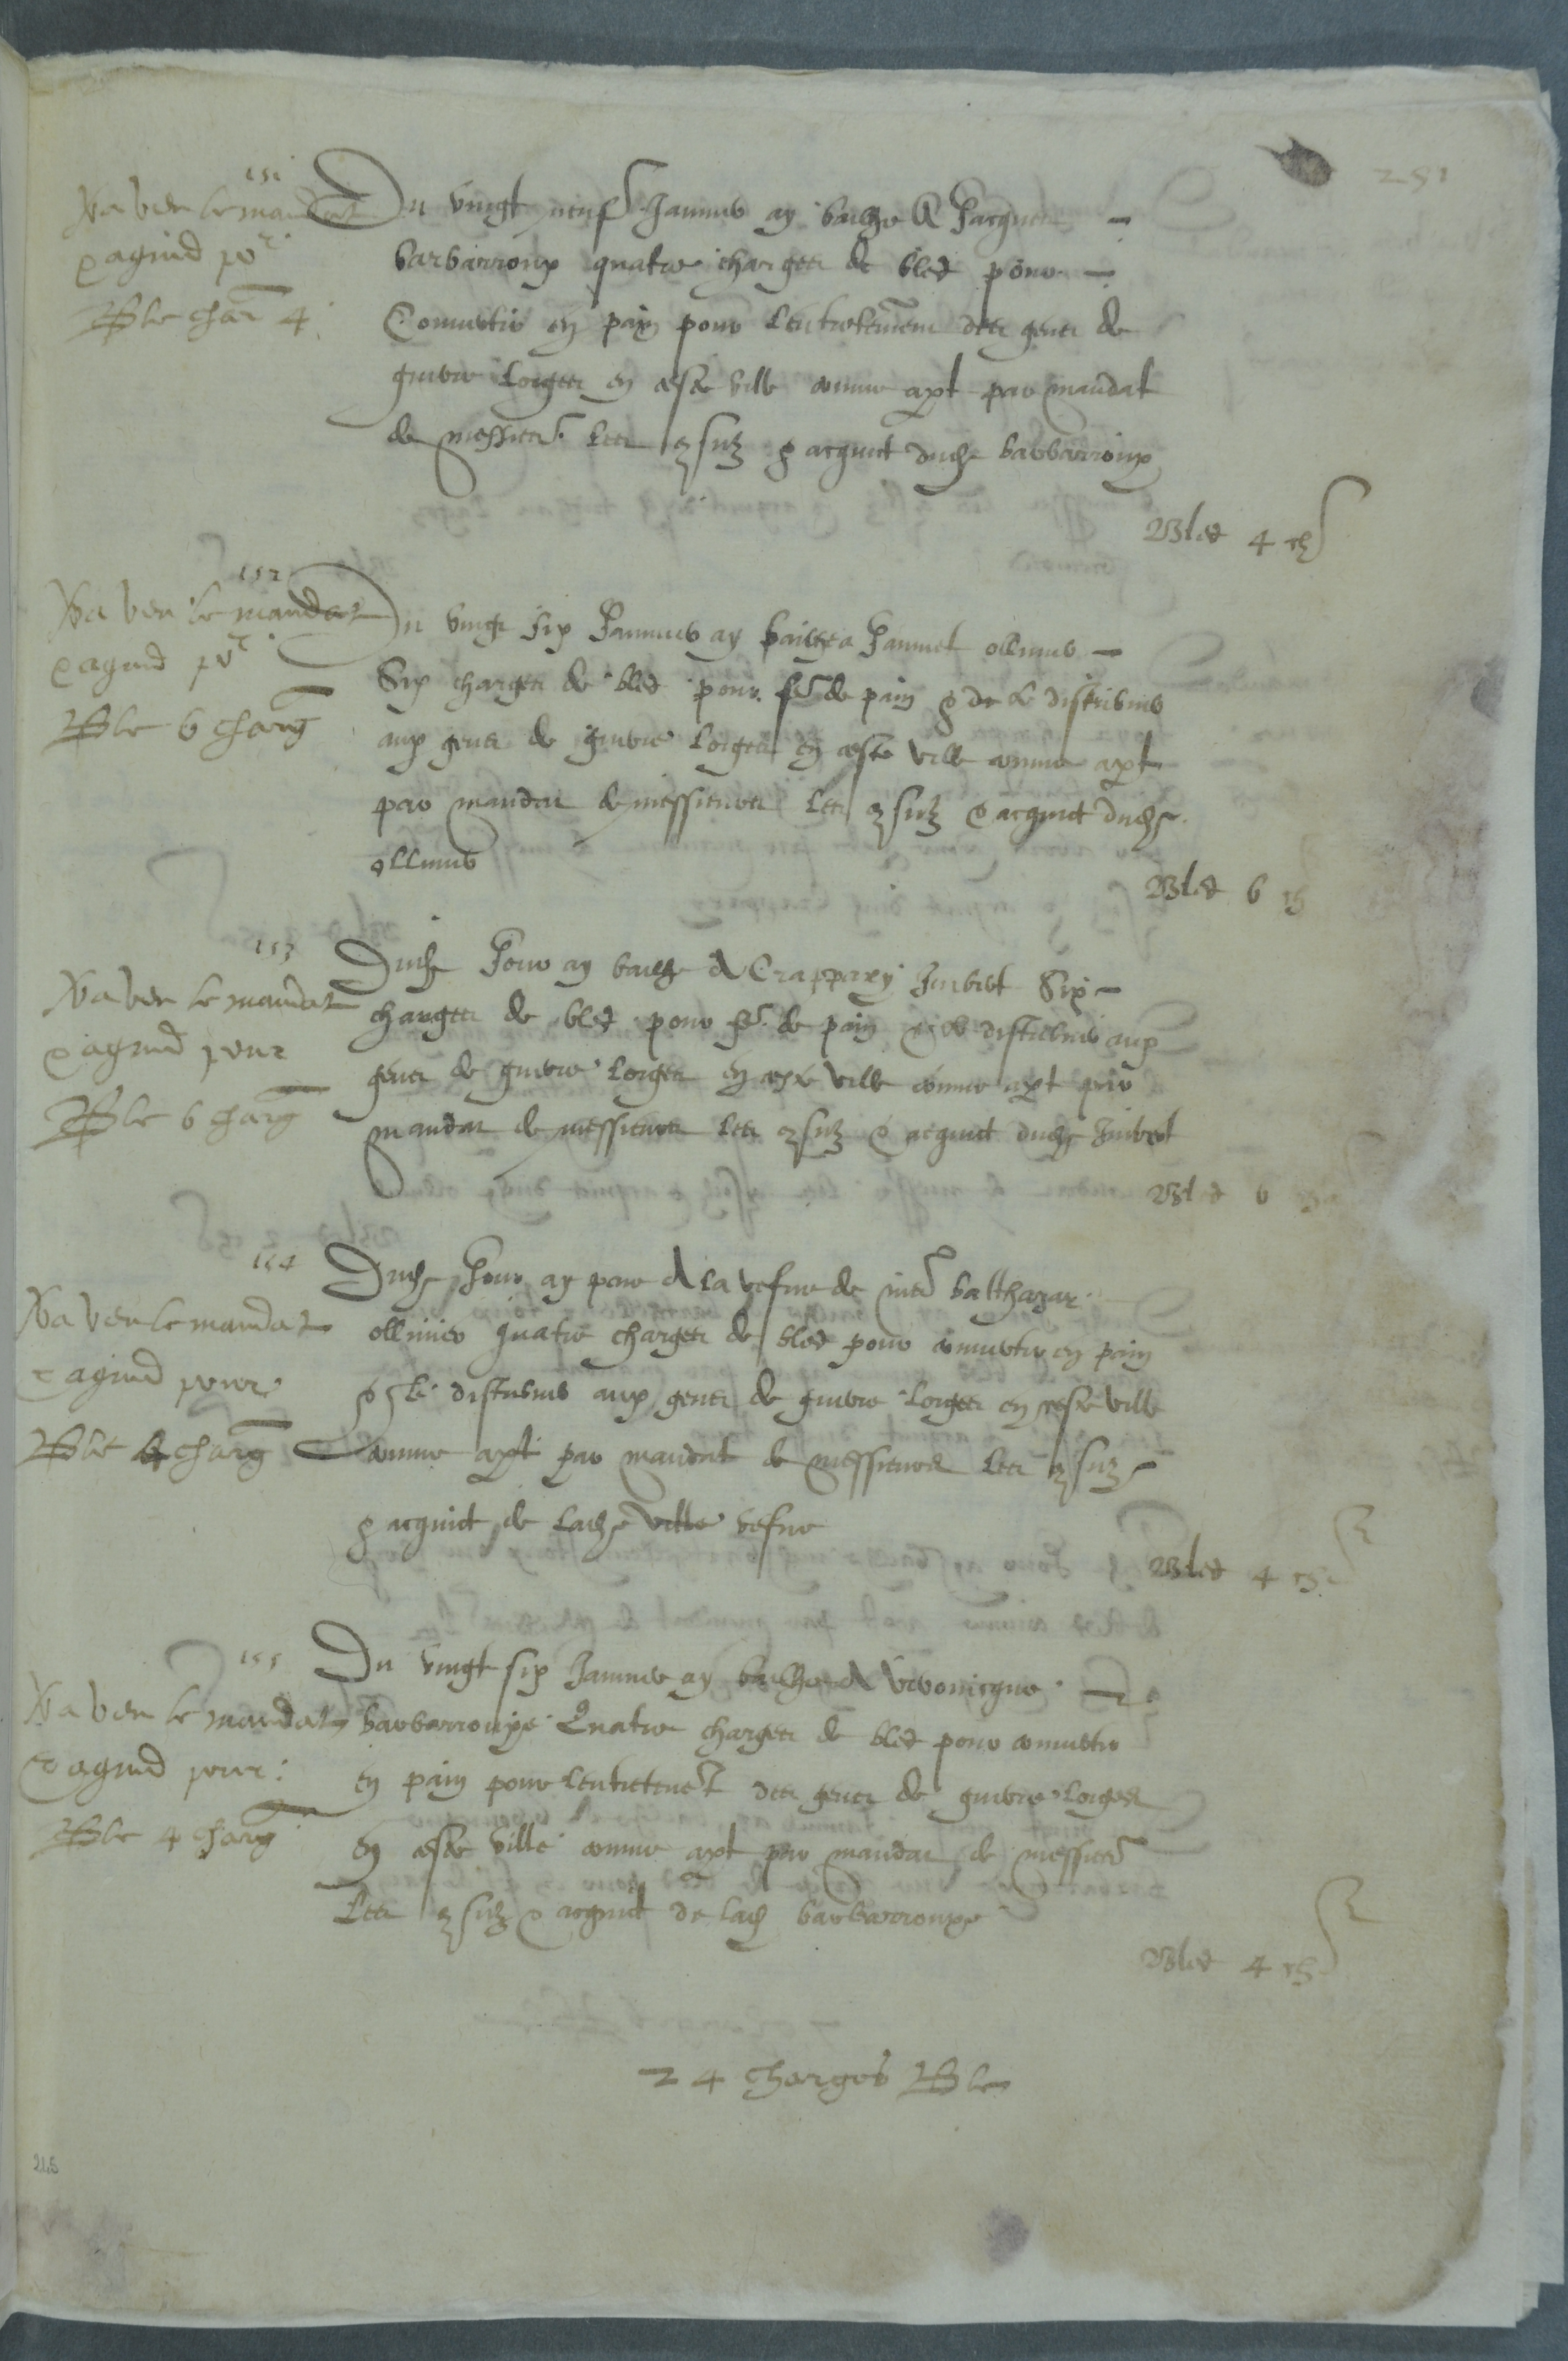 251
151
Na veu le mandat
& aquit po.r
Ble char 4
Du vingt neuf Janvier ay bailhe A Jacques
barbarroux quatre charges de bled pour
Convertir en pain pour lentretenement des gens de
guerre loiges en ceste ville comme apt par mandat
de messieurs les consulz & acquict dudict barbarroux
Bled 4 ch
152
Na veu le mandat
& aquit po.r
Ble 6 charg
Du vingt six Janvier ay bailhe a Jaumet ollivier
Six charges de bled pour fe de pain & de le distribuer
aux gens de guerre loiges en ceste ville comme apt
par mandat de messieurs les consulz & acquict dudict
ollivier
Bled 6 ch
153
Na veu le mandat
& aquit pour
Ble 6 charg
Dudict Jour ay bailhe A Crappaxy Imbert Six
charges de bled pour fe de pain & le distribuer aux
gens de guerre loiges en ceste ville comme apt par
mandat de messieurs les consulz & acquict dudict Imbert
Bled 6 ch
154
Na veu le mandat
& aquit pour
Ble 4 charg
Dudict Jour ay pour A la vefve de mer balthazar
ollivier quatre charges de bled pour convertir en pain
& le distribuer aux gens de guerre loiges en ceste ville
comme apt par mandat de messieurs les consulz
& acquict de ladicte ville vefve
Bled 4 ch
155
Na veu le mandat
& aquit pour
Ble 4 charg
Du vingt six Janvier ay bailhe A Veronicque
barbarrouxe Quatre charges de bled pour convertir
en pain pour lentretenet des gens de guerre loiges
en ceste ville comme apt par mandat de messieurs
les consulz & acquict de lad barbarrouxe
Bled 4 ch
24 charges Ble